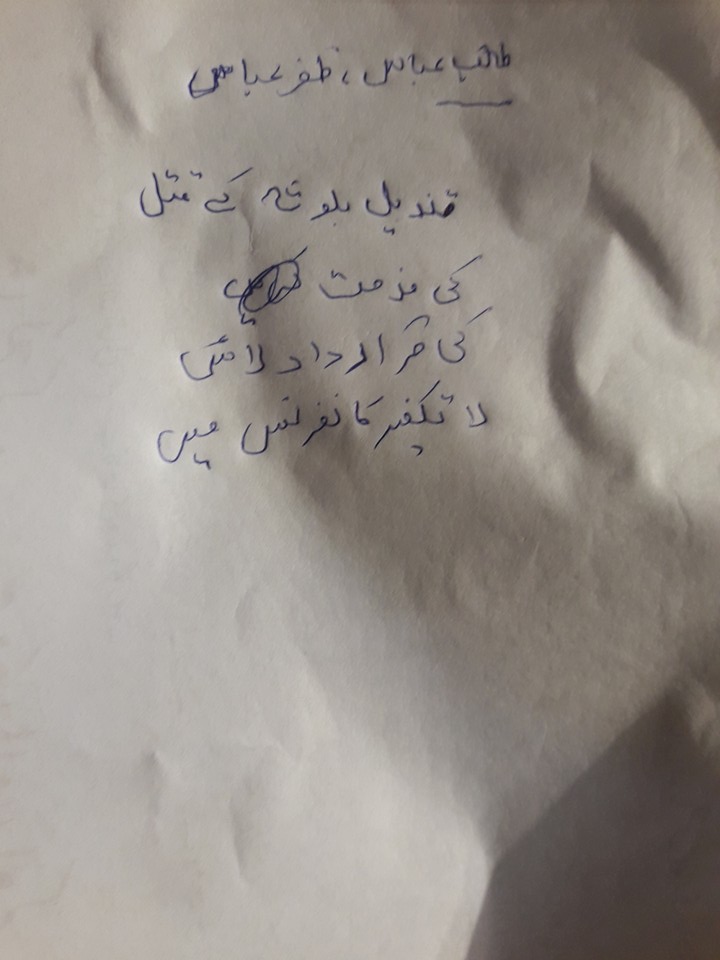 طالب عباس، ظفر عباس
قندیل بلوچ کے قتل
کی مذمت
کی قرارداد لائی
لا تکفیر کانفرنس میں